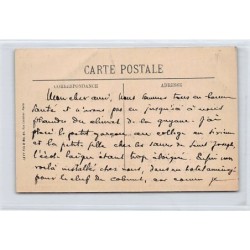 CARTE POSTALE
CORRESPONDANCE ADRESSE
Mon cher ami, Nous sommes tous en bonne
santé et n'avons pas eu jusqu'à à nous
plaindre du climat de la guyane. J'ai
placé le petit garçon au collège en
et la petite fille chez les sœurs de Saint Joseph,
l'école laïque étant trop éloignée. Enfin nous
voilà installés chez nous, dans un
pour le chef de cabinet, car comme je